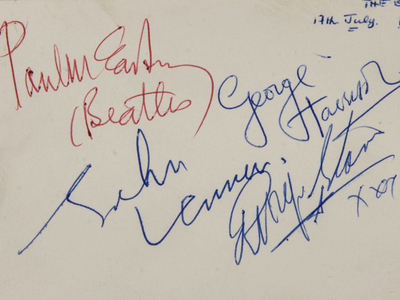 THE B
17th July.
Paul McCartney
(Beatles)
George
Harrison
John
Lennon.
Ringo Starr
xxx